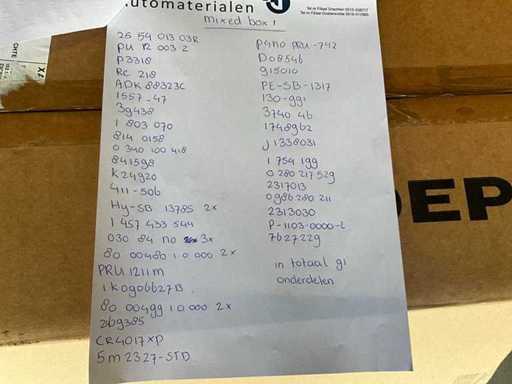 automaterialen
mixed box 1
25 54 013 03R
PU 12 003 2
P3318
RC 218
ADK 88323C
1557-47
39438
1 803 070
814 0158
0 340 100 418
841598
K24920
411-50b
Hy-SB 13785 2x
1 457 433 544
030 84 no 3x
80 0048b 1 0 000 2x
PRU1211m
1K0906627B
80 00499 1 0 000 2x
269385
CR4017XP
5m2327-STD
P4no PRU-742
D08546
915010
PE-SB-1317
130-991
3740 4b
1748962
J1338031
1 754 199
0 280 217 529
2317013
0986 280 211
2313030
P-1103-0000-2
7627229
in totaal 91
onderdelen
DEP